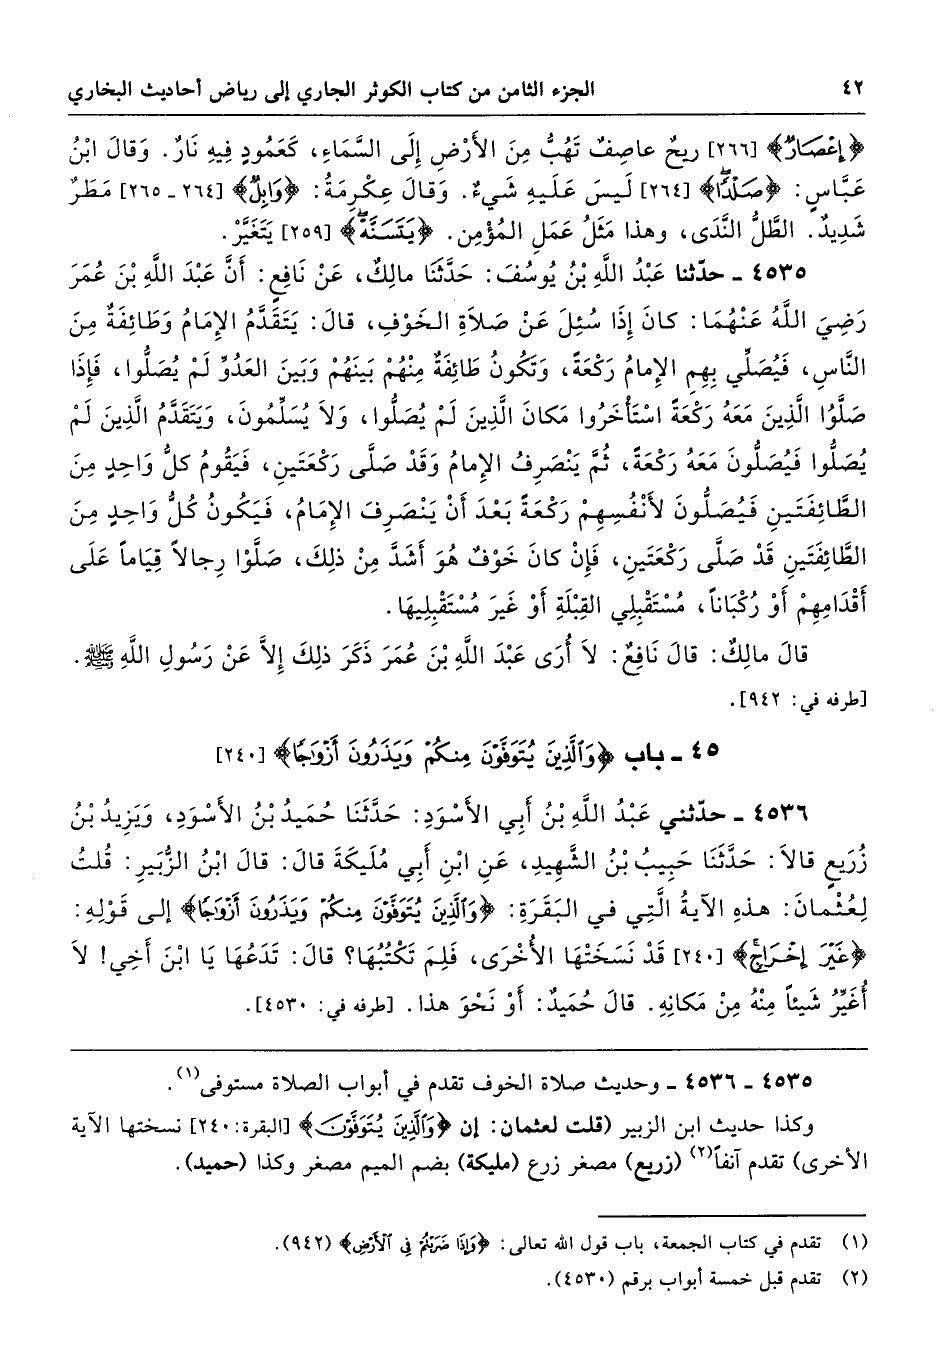 ٤٢ الجزء الثامن من كتاب الكوثر الجاري إلى رياض أحاديث البخاري
﴿إِعْصَارٌ﴾ [٢٦٦] رِيحٌ عاصِفٌ تَهُبُّ مِنَ الأَرْضِ إِلَى السَّمَاءِ، كَعَمُودٍ فِيهِ نَارٌ. وَقالَ ابْنُ
عَبَّاسٍ: ﴿صَلْدًاۖ﴾ [٢٦٤] لَيسَ عَلَيهِ شَيءٌ. وَقالَ عِكْرِمَةُ: ﴿وَابِلٌ﴾ [٢٦٤ ـ ٢٦٥] مَطَرٌ
شَدِيدٌ. الطَّلُّ النَّدَى، وهذا مَثَلُ عَمَلِ المُؤْمِنِ. ﴿يَتَسَنَّهْۖ﴾ [٢٥٩] يَتَغَيَّرْ.
٤٥٣٥ ـ حدّثنا عَبْدُ اللَّهِ بْنُ يُوسُفَ: حَدَّثَنَا مالِكٌ، عَنْ نَافِعٍ: أَنَّ عَبْدَ اللَّهِ بْنَ عُمَرَ
رَضِيَ اللَّهُ عَنْهُمَا: كانَ إِذَا سُئِلَ عَنْ صَلاَةِ الخَوْفِ، قالَ: يَتَقَدَّمُ الإِمامُ وَطَائِفَةٌ مِنَ
النَّاسِ، فَيُصَلِّي بِهِمِ الإِمامُ رَكْعَةً، وَتَكُونُ طَائِفَةٌ مِنْهُمْ بَينَهُمْ وَبَينَ العَدُوِّ لَمْ يُصَلُّوا، فَإِذَا
صَلَّوُا الَّذِينَ مَعَهُ رَكْعَةً اسْتَأْخَرُوا مَكانَ الَّذِينَ لَمْ يُصَلُّوا، وَلاَ يُسَلِّمُونَ، وَيَتَقَدَّمُ الَّذِينَ لَمْ
يُصَلُّوا فَيُصَلُّونَ مَعَهُ رَكْعَةً، ثُمَّ يَنْصَرِفُ الإِمامُ وَقَدْ صَلَّى رَكْعَتَينِ، فَيَقُومُ كلُّ وَاحِدٍ مِنَ
الطَّائِفَتَينِ فَيُصَلُّونَ لأَنْفُسِهِمْ رَكْعَةً بَعْدَ أَنْ يَنْصَرِفَ الإِمَامُ، فَيَكُونُ كُلُّ وَاحِدٍ مِنَ
الطَّائِفَتَينِ قَدْ صَلَّى رَكْعَتَينِ، فَإِنْ كانَ خَوْفٌ هُوَ أَشَدَّ مِنْ ذلِكَ، صَلَّوْا رِجالاً قِيَاماً عَلَى
أَقْدَامِهِمْ أَوْ رُكْبَاناً، مُسْتَقْبِلِي القِبْلَةِ أَوْ غَيرَ مُسْتَقْبِلِيهَا.
قالَ مالِكٌ: قالَ نَافِعٌ: لاَ أُرَى عَبْدَ اللَّهِ بْنَ عُمَرَ ذَكَرَ ذلِكَ إِلاَّ عَنْ رَسُولِ اللَّهِ ﷺ.
[طرفه في: ٩٤٢].
٤٥ ـ باب ﴿وَٱلَّذِينَ يُتَوَفَّوْنَ مِنكُمْ وَيَذَرُونَ أَزْوَٰجًا﴾ [٢٤٠]
٤٥٣٦ ـ حدّثني عَبْدُ اللَّهِ بْنُ أَبِي الأَسْوَدِ: حَدَّثَنَا حُمَيدُ بْنُ الأَسْوَدِ، وَيَزِيدُ بْنُ
زُرَيعٍ قالاَ: حَدَّثَنَا حَبِيبُ بْنُ الشَّهِيدِ، عَنِ ابْنِ أَبِي مُلَيكَةَ قالَ: قالَ ابْنُ الزُّبَيرِ: قُلتُ
لِعُثْمانَ: هذهِ الآيَةُ الَّتِي في البَقَرَةِ: ﴿وَٱلَّذِينَ يُتَوَفَّوْنَ مِنكُمْ وَيَذَرُونَ أَزْوَٰجًا﴾ إلى قَوْلِهِ:
﴿غَيْرَ إِخْرَاجٍۚ﴾ [٢٤٠] قَدْ نَسَخَتْهَا الأُخْرَى، فَلِمَ تَكْتُبُهَا؟ قالَ: تَدَعُهَا يَا ابْنَ أَخِي! لاَ
أُغَيِّرُ شَيئاً مِنْهُ مِنْ مَكانِهِ. قالَ حُمَيدٌ: أَوْ نَحْوَ هذا. [طرفه في: ٤٥٣٠].
٤٥٣٥ ـ ٤٥٣٦ ـ وحديث صلاة الخوف تقدم في أبواب الصلاة مستوفى(١).
وكذا حديث ابن الزبير (قلت لعثمان: إن ﴿وَٱلَّذِينَ يُتَوَفَّوْنَ﴾ [البقرة: ٢٤٠] نسختها الآية
الأخرى) تقدم آنفاً(٢) (زريع) مصغر زرع (مليكة) بضم الميم مصغر وكذا (حميد).
(١) تقدم في كتاب الجمعة، باب قول الله تعالى: ﴿وَإِذَا ضَرَبْتُمْ فِى ٱلْأَرْضِ﴾ (٩٤٢).
(٢) تقدم قبل خمسة أبواب برقم (٤٥٣٠).